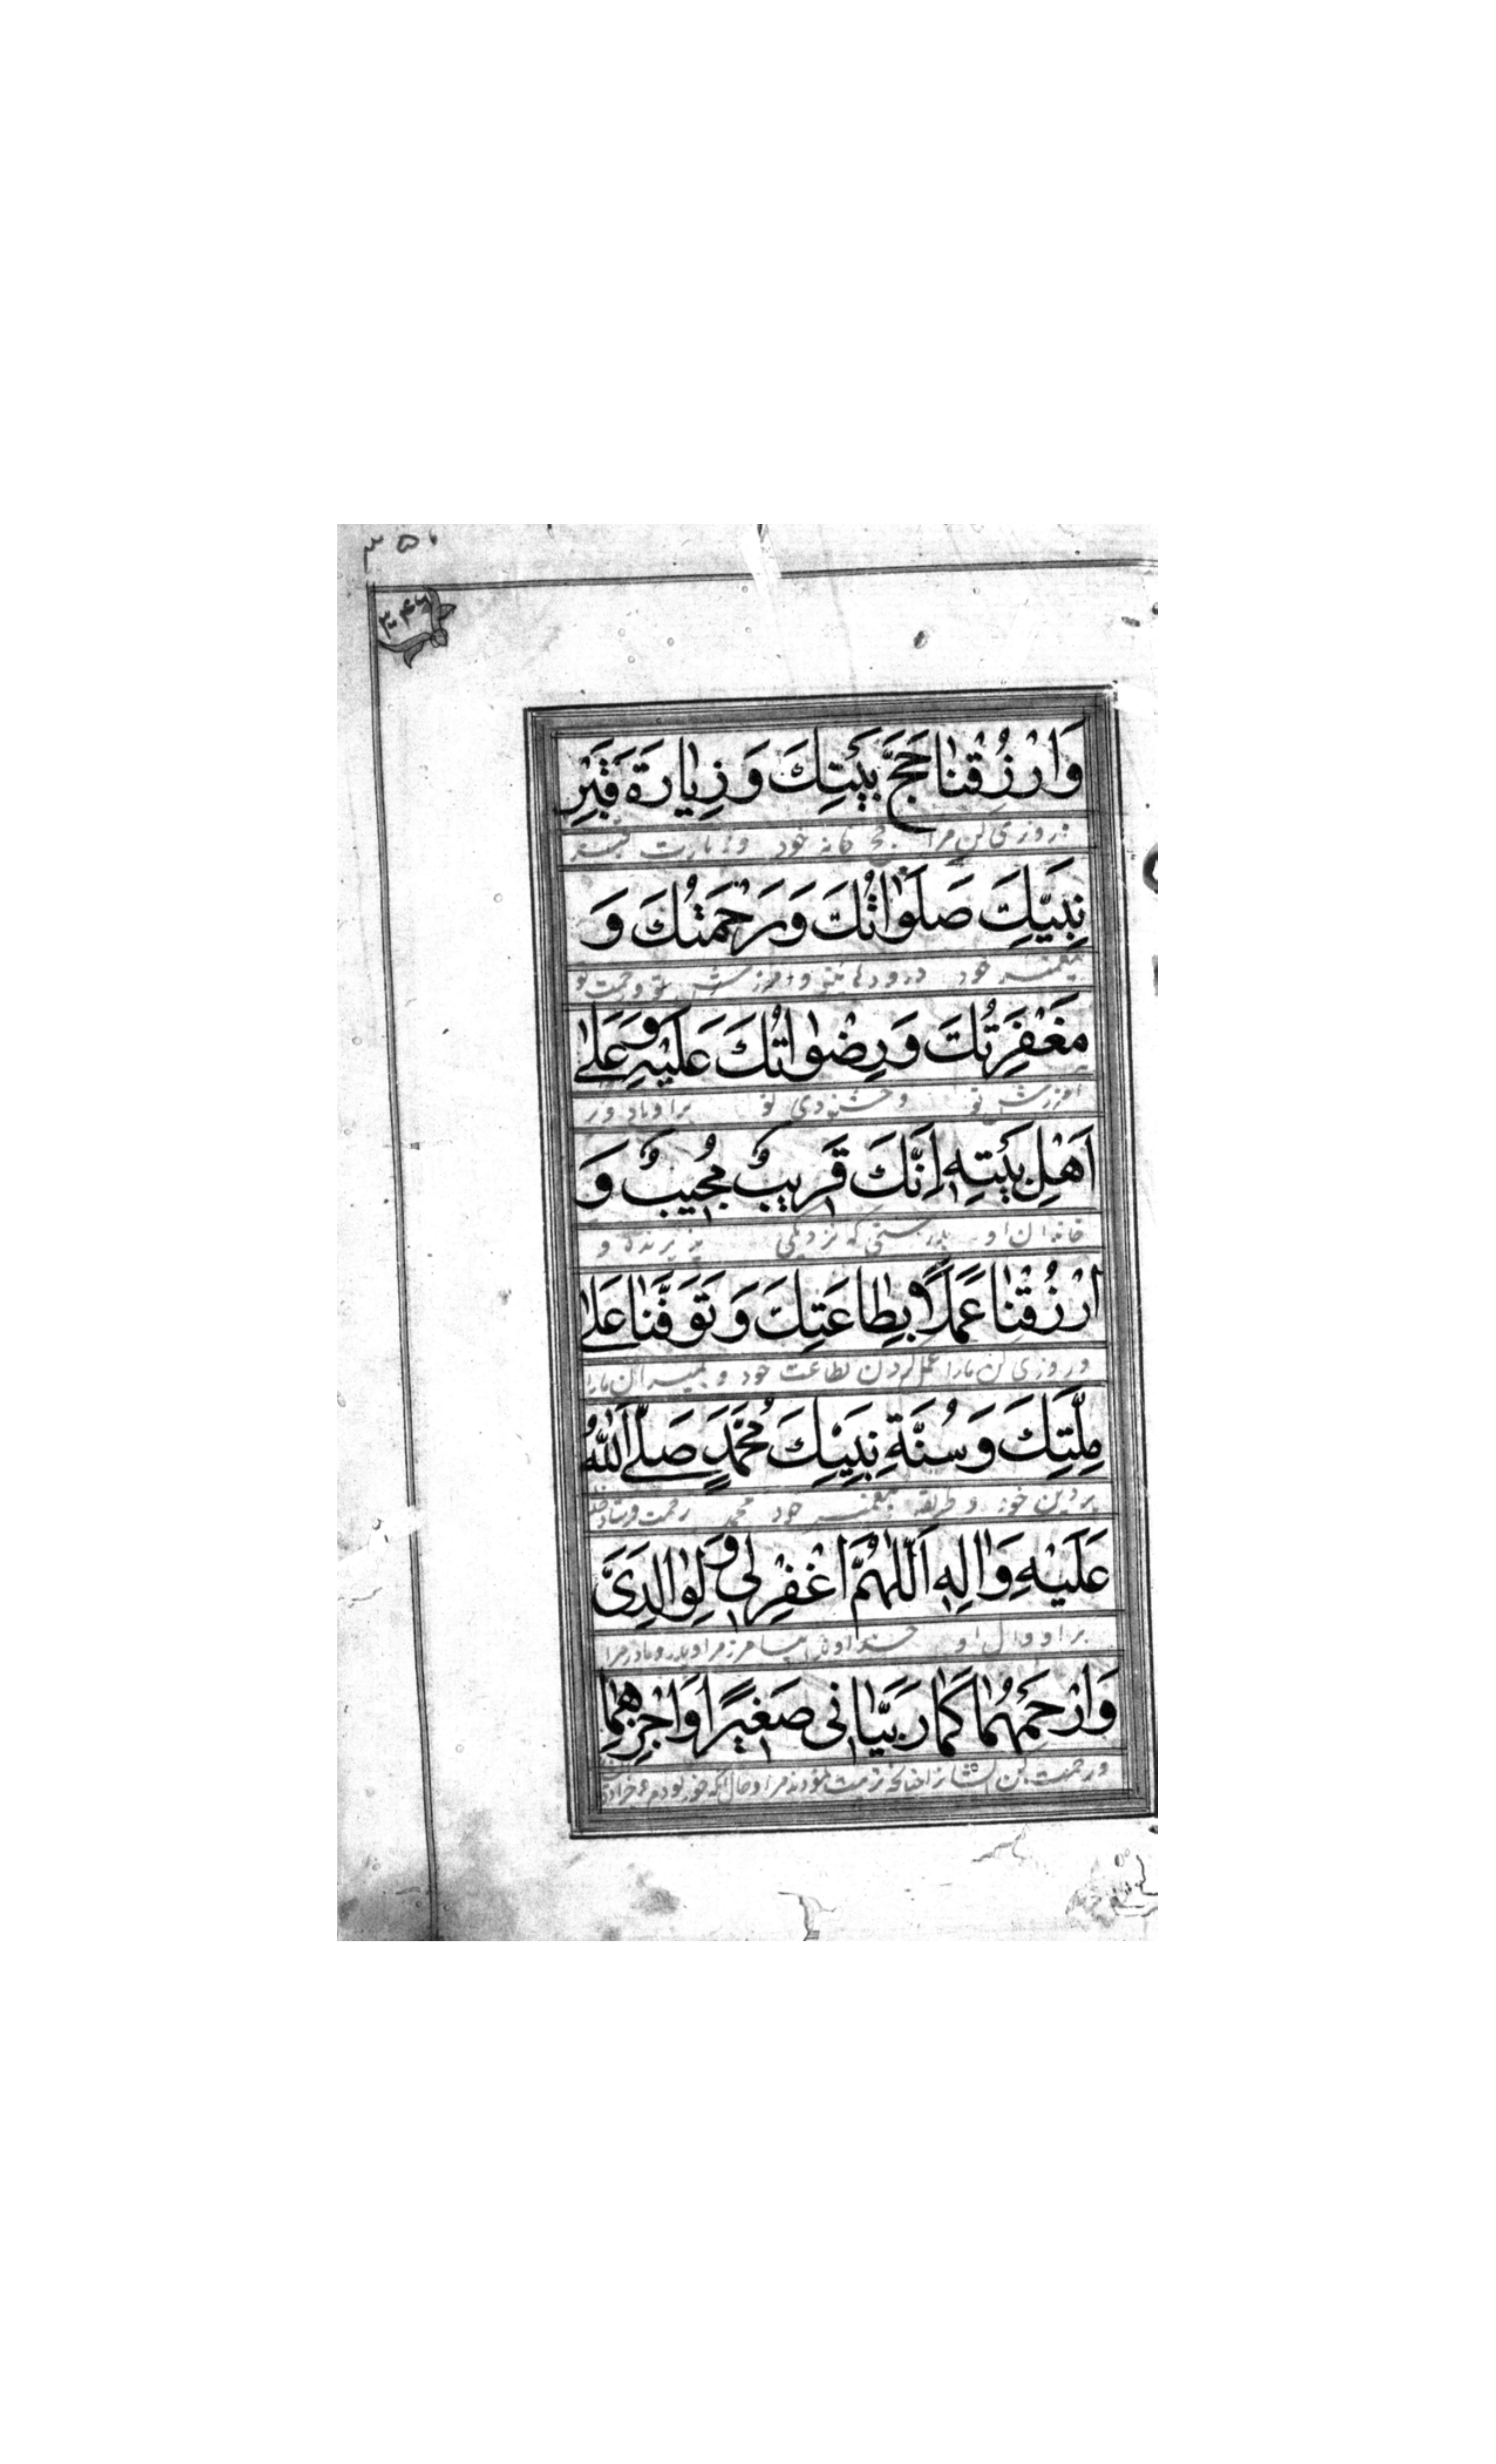 ۳۵۰
۳۴۶
وَارْزُقْنٰا حَجَّ بَيْتِكَ وَزِيٰارَةَ قَبْرِ
و روزی کن مرا حج خانه خود و زیارت قبر
نَبِيِّكَ صَلَوٰاتُكَ وَرَحْمَتُكَ وَ
پیغمبر خود درودهای تو و امرزش تو و رحمت تو
مَغْفِرَتُكَ وَرِضْوٰانُكَ عَلَيْهِ وَعَلىٰ
امرزش تو و خشنودی تو بر او باد و بر
اَهْلِ بَيْتِهِ اِنَّكَ قَرِيبٌ مُجِيبٌ وَ
خاندان او بدرستی که نزدیکی پذیرنده و
ارْزُقْنٰا عَمَلًا بِطٰاعَتِكَ وَتَوَفَّنٰا عَلىٰ
و روزی کن مارا عمل کردن بطاعت خود و بمیران مارا
مِلَّتِكَ وَسُنَّةِ نَبِيِّكَ مُحَمَّدٍ صَلَّى اللّٰهُ
بر دین خود و طریقه پیغمبر خود محمد رحمت فرستاد خدا
عَلَيْهِ وَاٰلِهِ اَللّٰهُمَّ اغْفِرْ لِي وَلِوٰالِدَيَّ
بر او و ال او خداوندا بیامرز مرا و پدر و مادر مرا
وَارْحَمْهُمٰا كَمٰا رَبَّيٰانِي صَغِيرًا وَاجْزِهِمٰا
و رحمت کن ایشانرا چنانکه تربیت نمودند مرا و حال آنکه خورد بودم و جزا ده